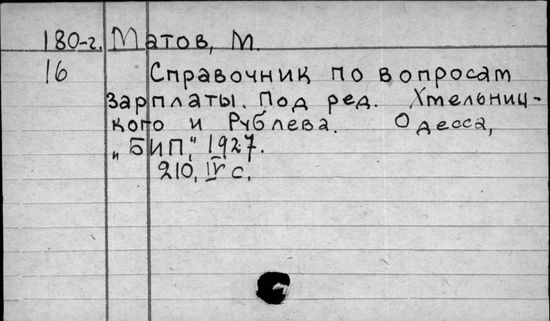 180-г. Матов, М.
16 Справочник по вопросам
зарплаты. Под ред. Хмельниц-
кого и Рублева. Одесса,
„БИП", 1927.
210, IV с.